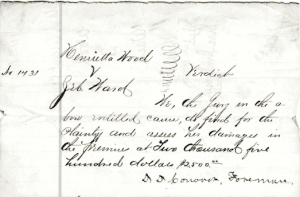 Henrietta Wood
No 1431 V Verdict
Zeb Ward
We, the Jury in the a
bove entitled cause, do find for the
Plaintiff and assess her damages in
the premises at Two thousand five
hundred dollars $2500.00
Foreman.